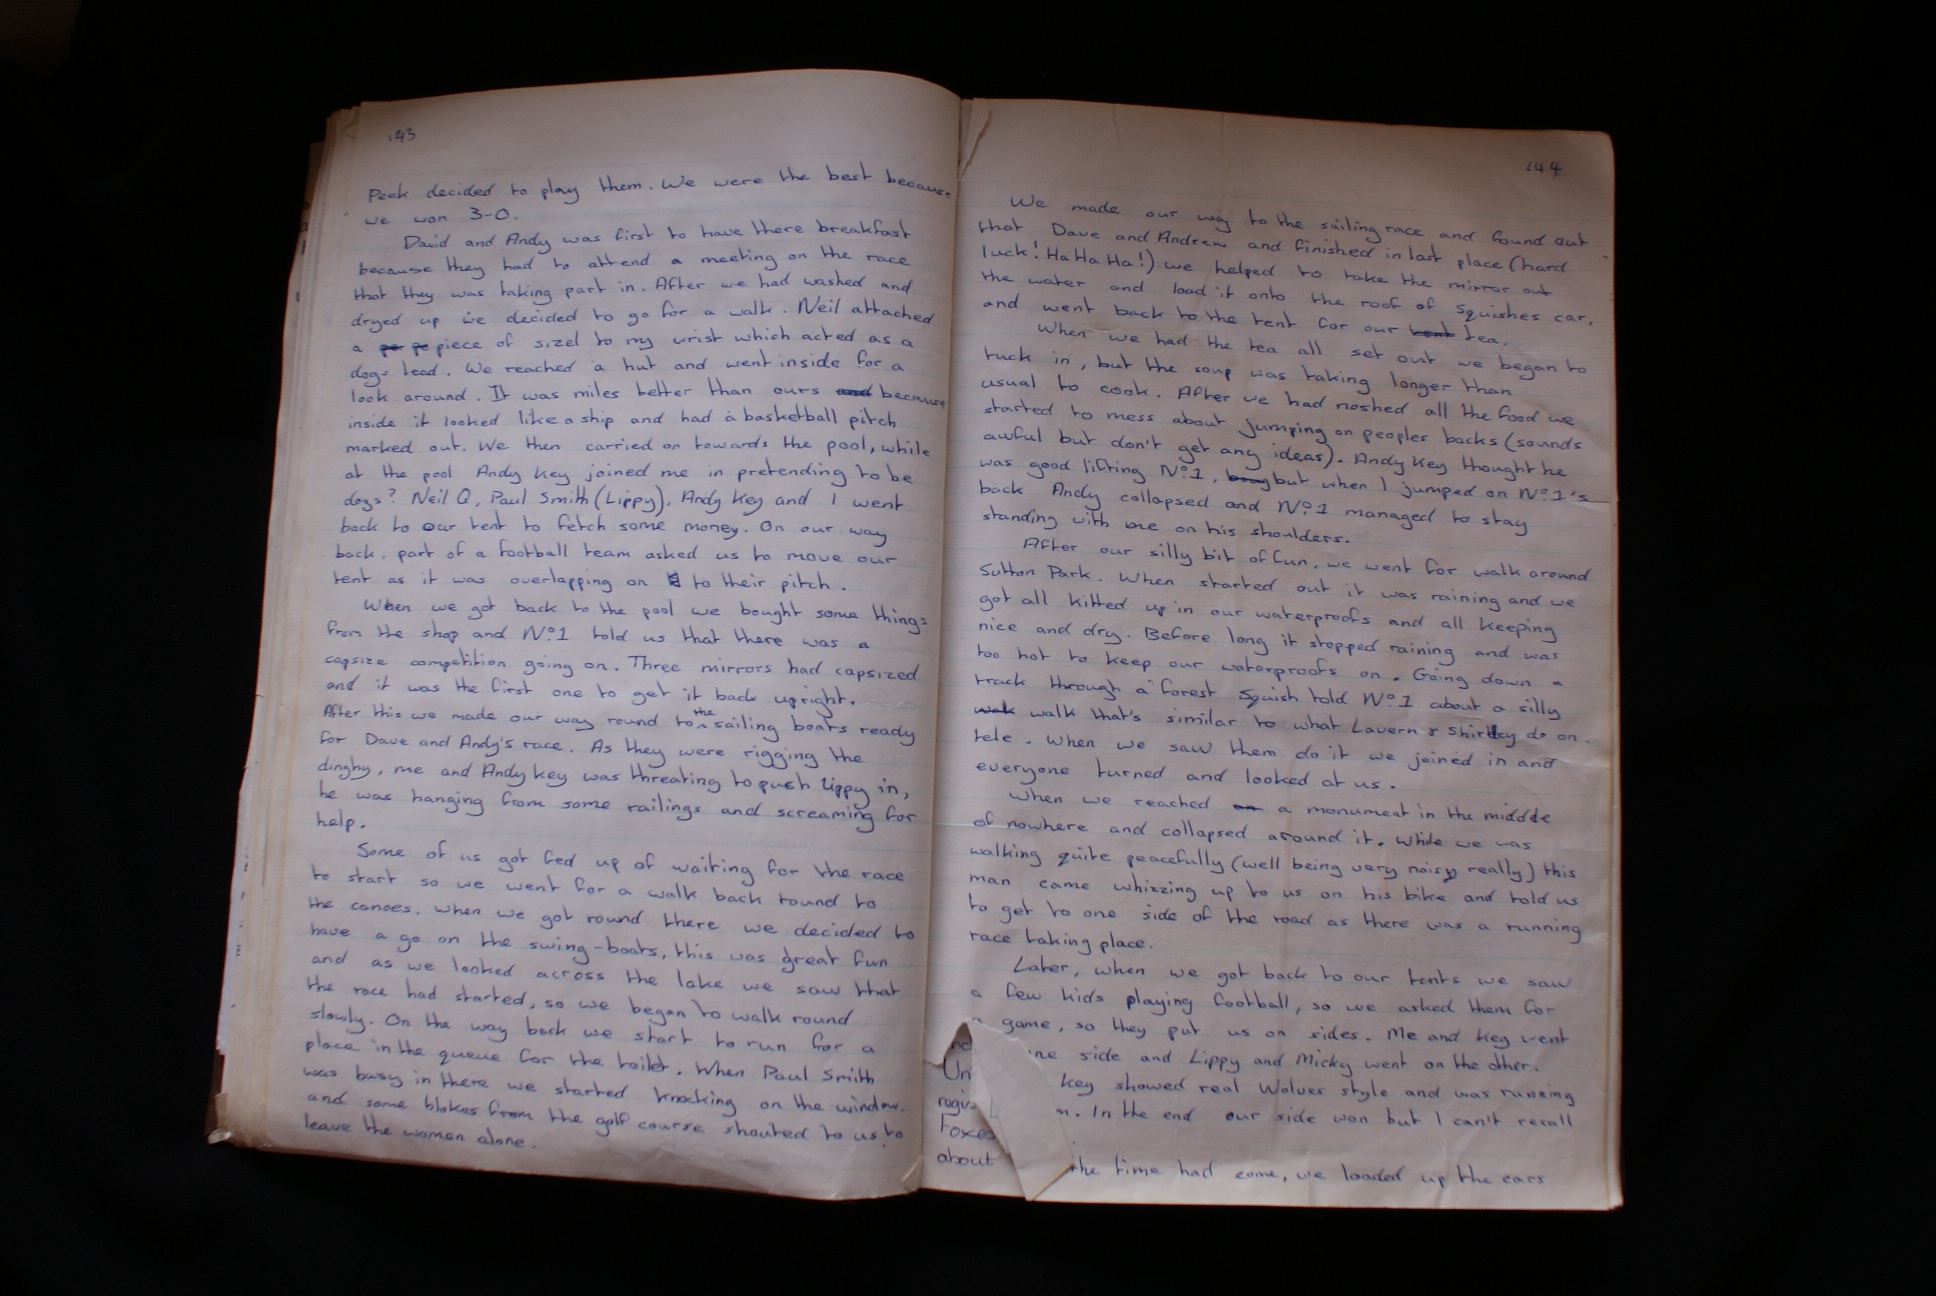 143
Peek decided to play them. We were the best because
we won 3-0.
David and Andy was first to have there breakfast
because they had to attend a meeting on the race
that they was taking part in. After we had washed and
dryed up we decided to go for a walk. Neil attached
a piece of sizel to my wrist which acted as a
dogs lead. We reached a hut and went inside for a
look around. It was miles better than ours and because
inside it looked like a ship and had a basketball pitch
marked out. We then carried on towards the pool, while
at the pool Andy Key joined me in pretending to be
dogs? Neil Q, Paul Smith (Lippy), Andy Key and I went
back to our tent to fetch some money. On our way
back, part of a football team asked us to move our
tent as it was overlapping on to their pitch.
When we got back to the pool we bought some things
from the shop and Nº1 told us that there was a
capsize competition going on. Three mirrors had capsized
and it was the first one to get it back upright.
After this we made our way round to the sailing boats ready
for Dave and Andy's race. As they were rigging the
dinghy, me and Andy Key was threating to push Lippy in,
he was hanging from some railings and screaming for
help.
Some of us got fed up of waiting for the race
to start so we went for a walk back round to
the canoes. When we got round there we decided to
have a go on the swing-boats, this was great fun
and as we looked across the lake we saw that
the race had started, so we began to walk round
slowly. On the way back we start to run for a
place in the queue for the toilet. When Paul Smith
was busy in there we started knocking on the window,
and some blokes from the golf course shouted to us to
leave the women alone.
144
We made our way to the sailing race and found out
that Dave and Andrew and finished in last place (hard
luck! Ha Ha Ha!) we helped to take the mirror out
the water and load it onto the roof of Squishes car,
and went back to the tent for our tent tea.
When we had the tea all set out we began to
tuck in, but the soup was taking longer than
usual to cook. After we had noshed all the food we
started to mess about jumping on peoples backs (sounds
awful but don't get any ideas). Andy Key thought he
was good lifting Nº1, but when I jumped on Nº1's
back Andy collapsed and Nº1 managed to stay
standing with me on his shoulders.
After our silly bit of fun, we went for walk around
Sutton Park. When started out it was raining and we
got all kitted up in our waterproofs and all keeping
nice and dry. Before long it stopped raining and was
too hot to keep our waterproofs on. Going down a
track through a forest Squish told Nº1 about a silly
walk that's similar to what Lavern & Shirlley do on
tele. When we saw them do it we joined in and
everyone turned and looked at us.
When we reached on a monument in the middle
of nowhere and collapsed around it. While we was
walking quite peacefully (well being very noisy really) this
man came whizzing up to us on his bike and told us
to get to one side of the road as there was a running
race taking place.
Later, when we got back to our tents we saw
a few kids playing football, so we asked them for
a game, so they put us on sides. Me and Key went
side and Lippy and Micky went on the other.
Un Key showed real Wolves style and was running
In the end our side won but I can't recall
Foxes
about the time had come, we loaded up the cars